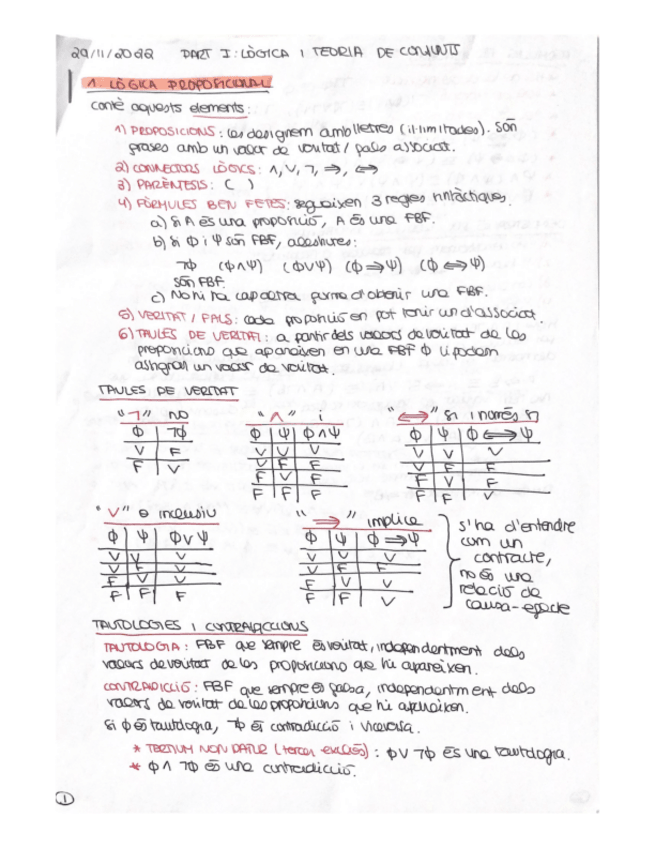 29/11/2022 PART I: LÒGICA I TEORIA DE CONJUNTS
1. LÒGICA PROPOSICIONAL
Conté aquests elements:
1) PROPOSICIONS: les designem amb lletres (il·limitades). Són
frases amb un valor de veritat / fals associat.
2) CONNECTORS LÒGICS: ∧, ∨, ¬, ⇒, ⟺
3) PARÈNTESIS: ( )
4) FÓRMULES BEN FETES: segueixen 3 regles sintàctiques.
a) Si A és una proposició, A és una FBF.
b) Si Φ i Ψ són FBF, aleshores:
¬Φ (Φ∧Ψ) (Φ∨Ψ) (Φ⇒Ψ) (Φ⟺Ψ)
són FBF.
c) No hi ha cap altra forma d'obtenir una FBF.
5) VERITAT / FALS: cada proposició en pot tenir un d'associat.
6) TAULES DE VERITAT: a partir dels valors de veritat de les
proposicions que apareixen en una FBF Φ li podem
assignar un valor de veritat.
TAULES DE VERITAT
"¬" no
Φ ¬Φ
V F
F V
"∧" i
Φ Ψ Φ∧Ψ
V V V
V F F
F V F
F F F
"⟺" si i només si
Φ Ψ Φ⟺Ψ
V V V
V F F
F V F
F F V
"∨" o inclusiu
Φ Ψ Φ∨Ψ
V V V
V F V
F V V
F F F
"⇒" implica
Φ Ψ Φ⇒Ψ
V V V
V F F
F V V
F F V
s'ha d'entendre
com un
contracte,
no és una
relació de
causa-efecte
TAUTOLOGIES I CONTRADICCIONS
TAUTOLOGIA: FBF que sempre és veritat, independentment dels
valors de veritat de les proposicions que hi apareixen.
CONTRADICCIÓ: FBF que sempre és falsa, independentment dels
valors de veritat de les proposicions que hi apareixen.
Si Φ és tautologia, ¬Φ és contradicció i viceversa.
* TERTIUM NON DATUR (tercer exclòs): Φ∨¬Φ és una tautologia.
* Φ∧¬Φ és una contradicció.
1